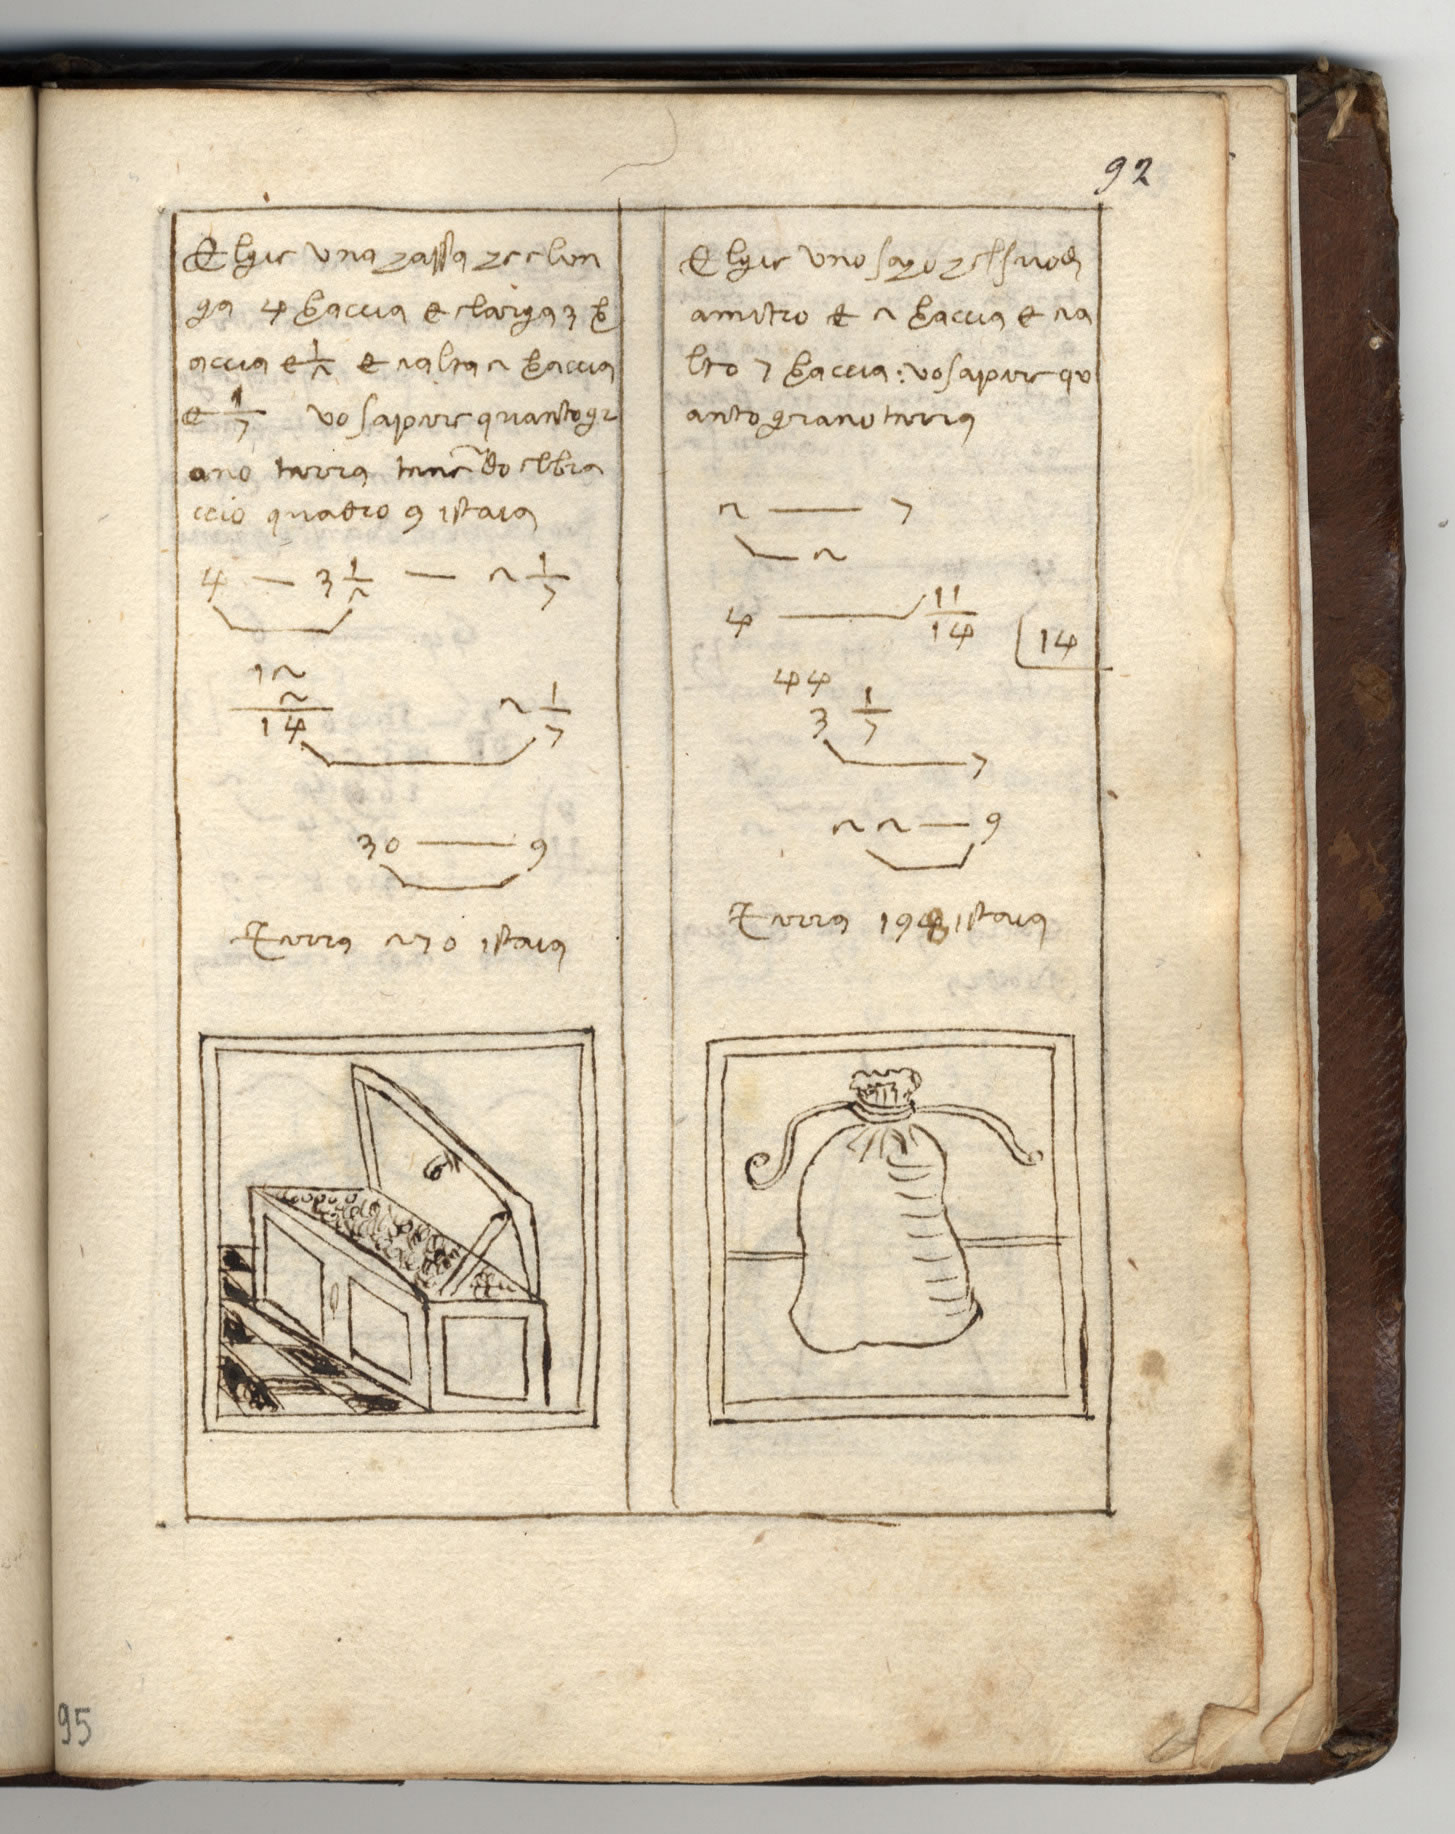 92
Elgie una cassa ch e lon
ga 4 braccia e elarga 3 br
accia e 1/2 e e alta 2 braccia
e 1/7 vo sapere quanto gr
ano terra tenendo el bra
ccio quadro 9 istaia
4 — 3 1/2 — 2 1/7
12
2
14 2 1/7
30 — 9
Terra 270 istaia
Elgie uno saco chel suo di
amitro e 2 braccia e e a
lto 7 braccia: vo sapere qu
anto grano terra
2 — 7
2
4 — 11/14 14
44
3 1/7
7
22 — 9
Terra 198 istaia
95